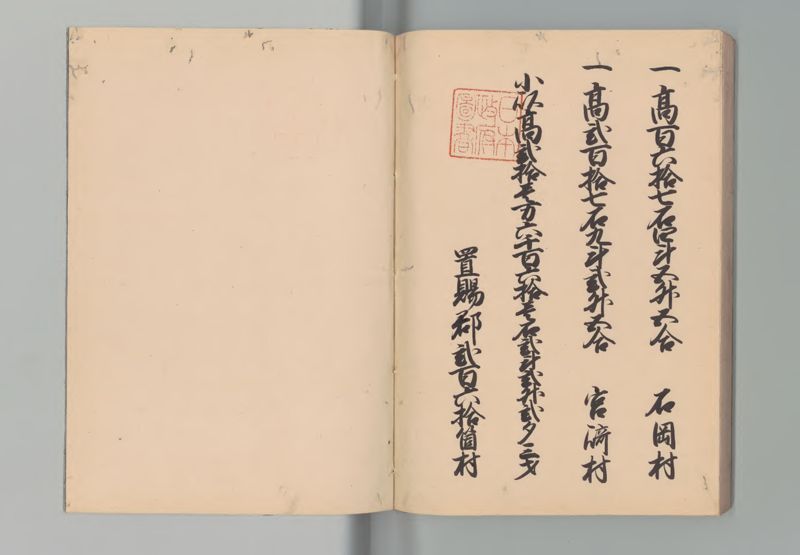 一高百六拾七石四斗五升五合 石岡村
一高弐百拾七石九斗弐升五合 宮濟村
小以高弐拾壱万六千百六拾壱石弐斗弐升弐夕三才
置賜郡弐百六拾箇村
日本
政府
圖書